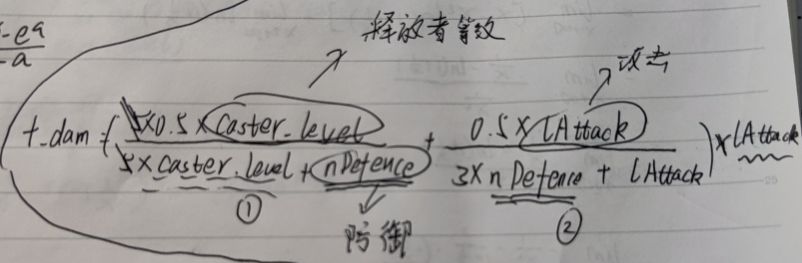 -e^a
-a
释放者等效
攻击
t_dam = ( 5×0.5×Caster_level / 5×caster_level + nDefence + 0.5×lAttack / 3×nDefence + lAttack ) × lAttack
① ②
防御